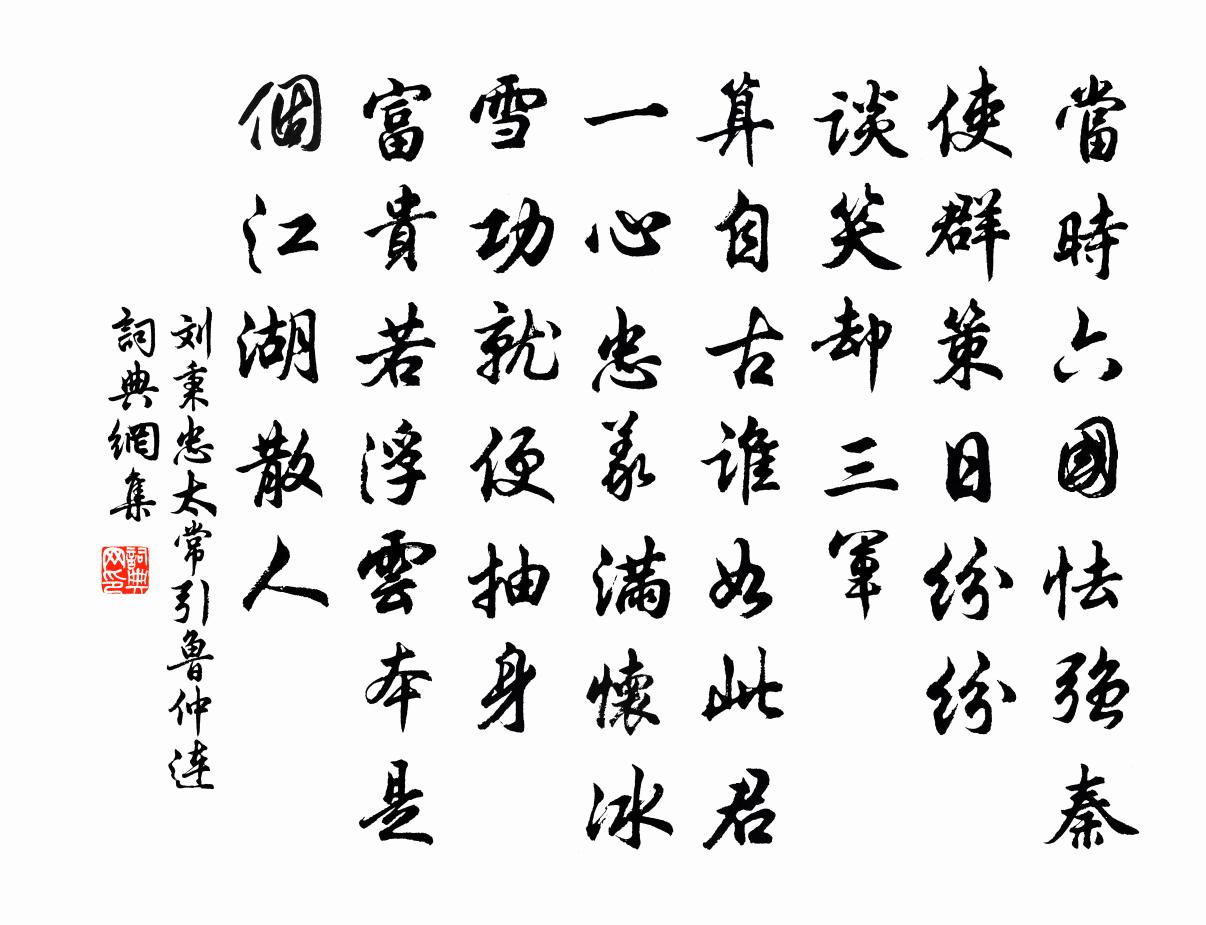 當時六國怯強秦
使群策日紛紛
談笑却三軍
算自古誰如此君
一心忠義滿懷冰
雪功就便抽身
富貴若浮雲本是
個江湖散人
刘秉忠太常引魯仲連
詞典網集
詞典
网印